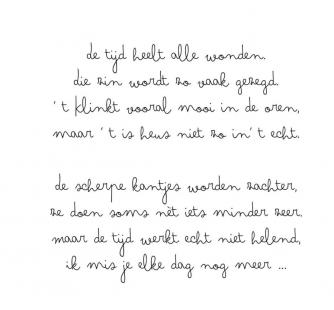 de tijd heelt alle wonden.
die zin wordt zo vaak gezegd.
't klinkt vooral mooi in de oren,
maar 't is heus niet zo in 't echt.
de scherpe kantjes worden zachter,
ze doen soms nèt iets minder zeer.
maar de tijd werkt echt niet helend,
ik mis je elke dag nog meer ...